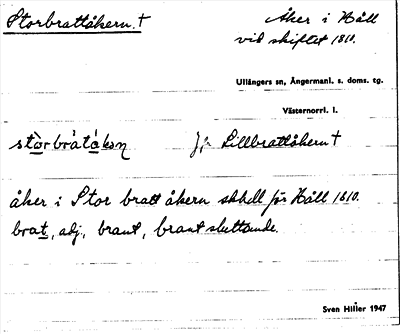 Storbrattåkern. †
Åker i Håll
vid skiftet 1810.
Ullångers sn, Ångermanl. s. doms. tg.
Västernorrl. l.
stòrbràtákɷn
Jfr Lillbrattåkern †
åker i Stor bratt åkern skkll för Håll 1810.
brat, adj., brant, brant sluttande.
Sven Hillier 1947